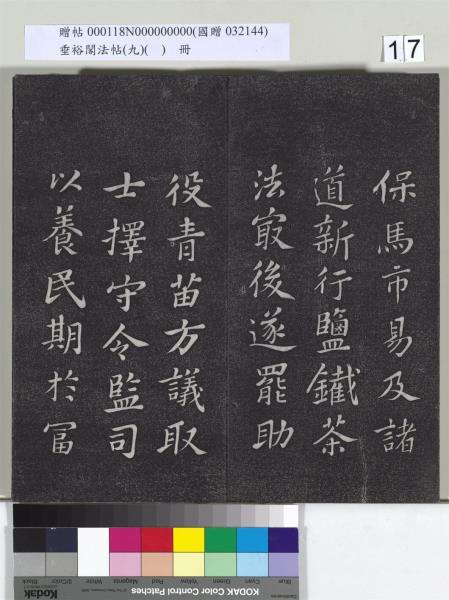 贈帖 000118N000000000(國贈 032144)
垂裕閣法帖(九)( ) 冊
17
保馬市易及諸
道新行鹽鐵茶
法冣後遂罷助
役青苗方議取
士擇守令監司
以養民期於冨
Blue Cyan Green Yellow Red Magenta White 3/Color Black
Kodak
KODAK Color Control Patches